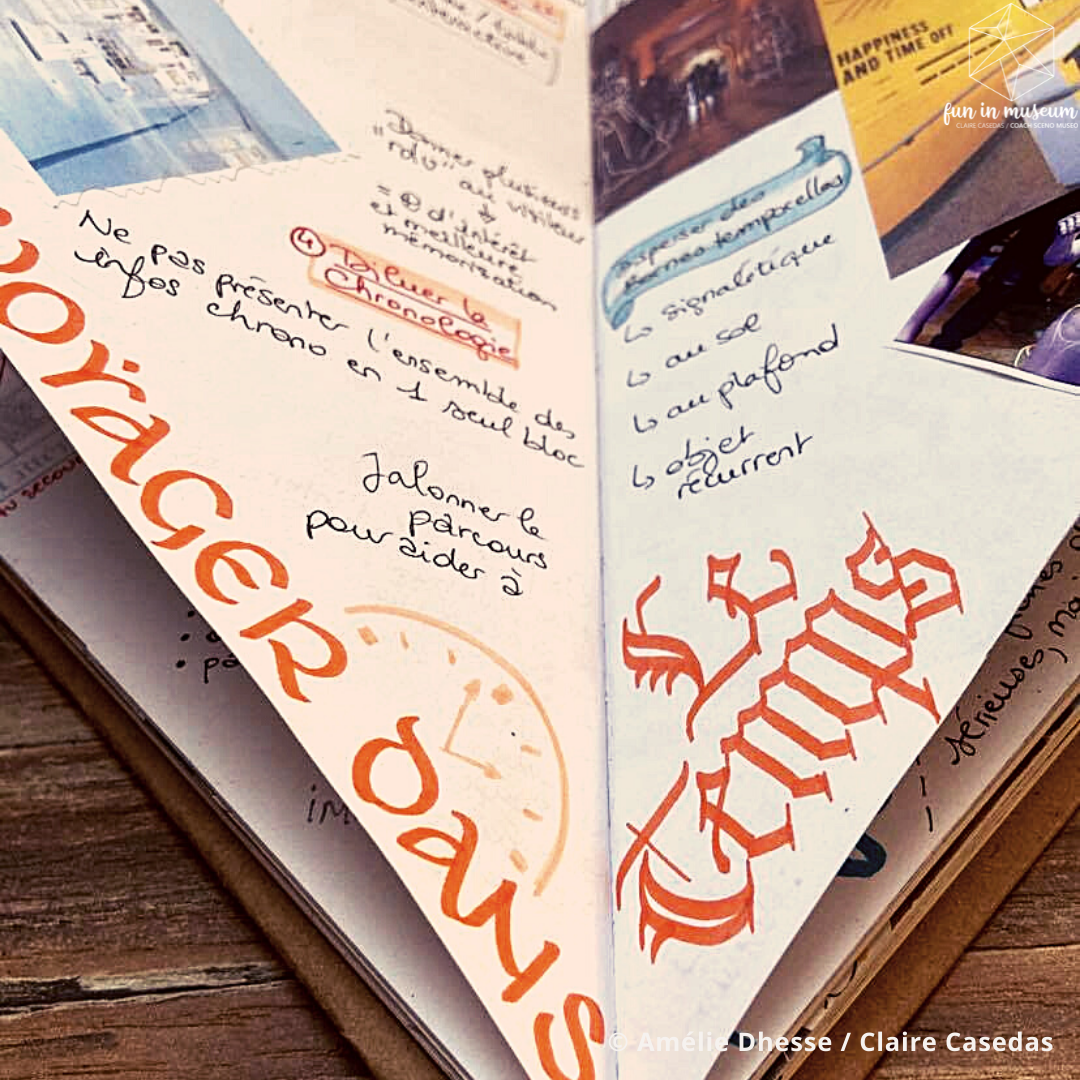 Donner plusieurs
"rdv" au visiteur
= ⊕ d'intérêt
et meilleure
mémorisation
④ Diluer la
Chronologie
Ne pas présenter l'ensemble des
infos chrono en 1 seul bloc
Jalonner le
parcours
pour aider à
VOYAGER DANS
HAPPINESS
AND TIME OFF
fun in museum
CLAIRE CASEDAS / COACH SCENO MUSEO
Disperser des
Bornes temporelles
↳ signalétique
↳ au sol
↳ au plafond
↳ objet
récurrent
LE
Temps
sérieuses, mai
© Amélie Dhesse / Claire Casedas